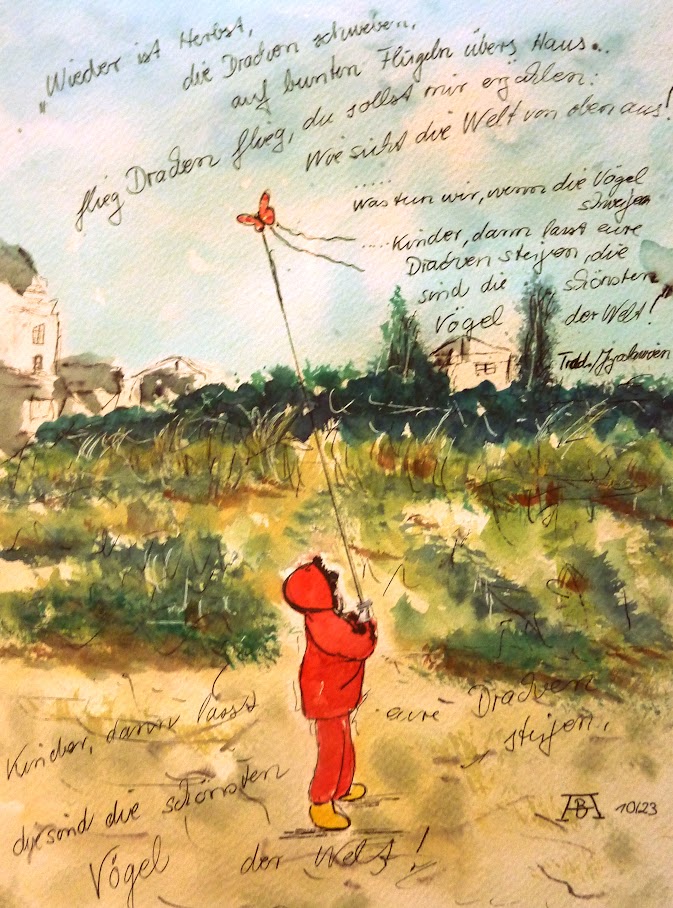 "Wieder ist Herbst,
die Drachen schweben,
auf bunten Flügeln übers Haus..
flieg Drachen flieg, du sollst mir erzählen:
Wie sieht die Welt von oben aus!
.....
was tun wir, wenn die Vögel
schweigen
.....Kinder, dann lasst eure
Drachen steigen, die
sind die schönsten
Vögel der Welt!"
Trad./
Kinder, dann lasst eure Drachen
steigen,
die sind die schönsten
Vögel der Welt!
AB 10/23